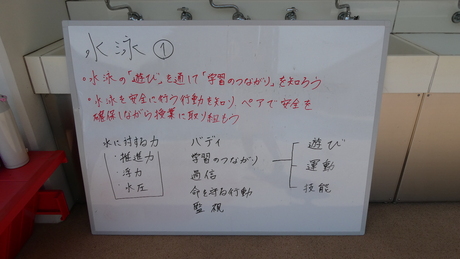 水泳 ①
・水泳の「遊び」を通して「学習のつながり」を知ろう
・水泳を安全に行う行動を知り、ペアで安全を
確保しながら授業に取り組もう
水に対する力
・推進力
・浮力
・水圧
バディ
学習のつながり
通信
命を守る行動
監視
遊び
運動
技能